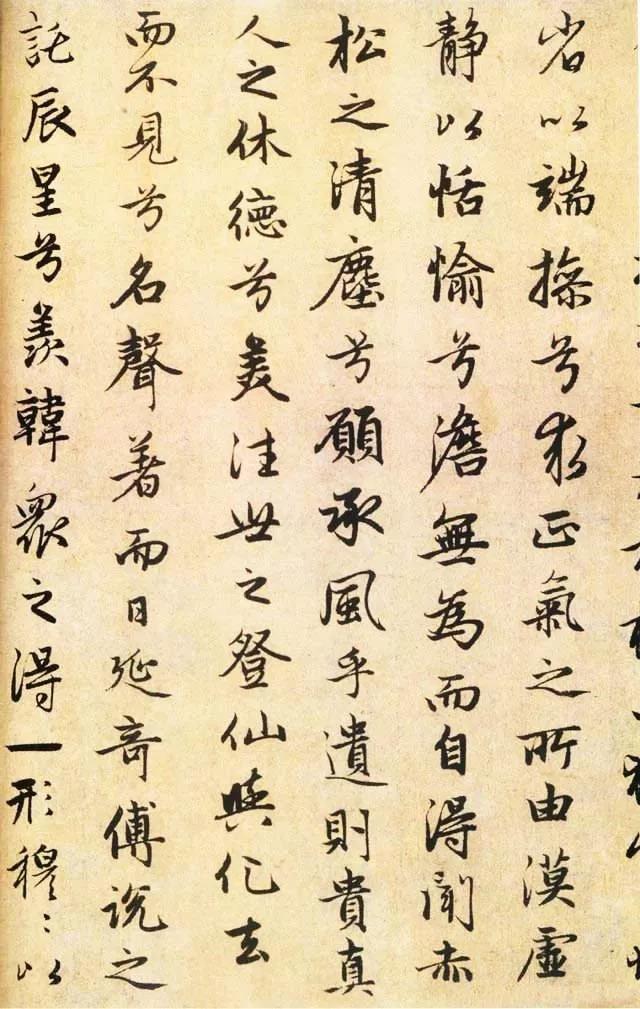 省以端操兮求正氣之所由漠虛
静以恬愉兮澹無為而自得聞赤
松之清塵兮願承風乎遺則貴真
人之休德兮美往世之登仙與化去
而不見兮名聲著而日延奇傅說之
託辰星兮羨韓眾之得一形穆〻以